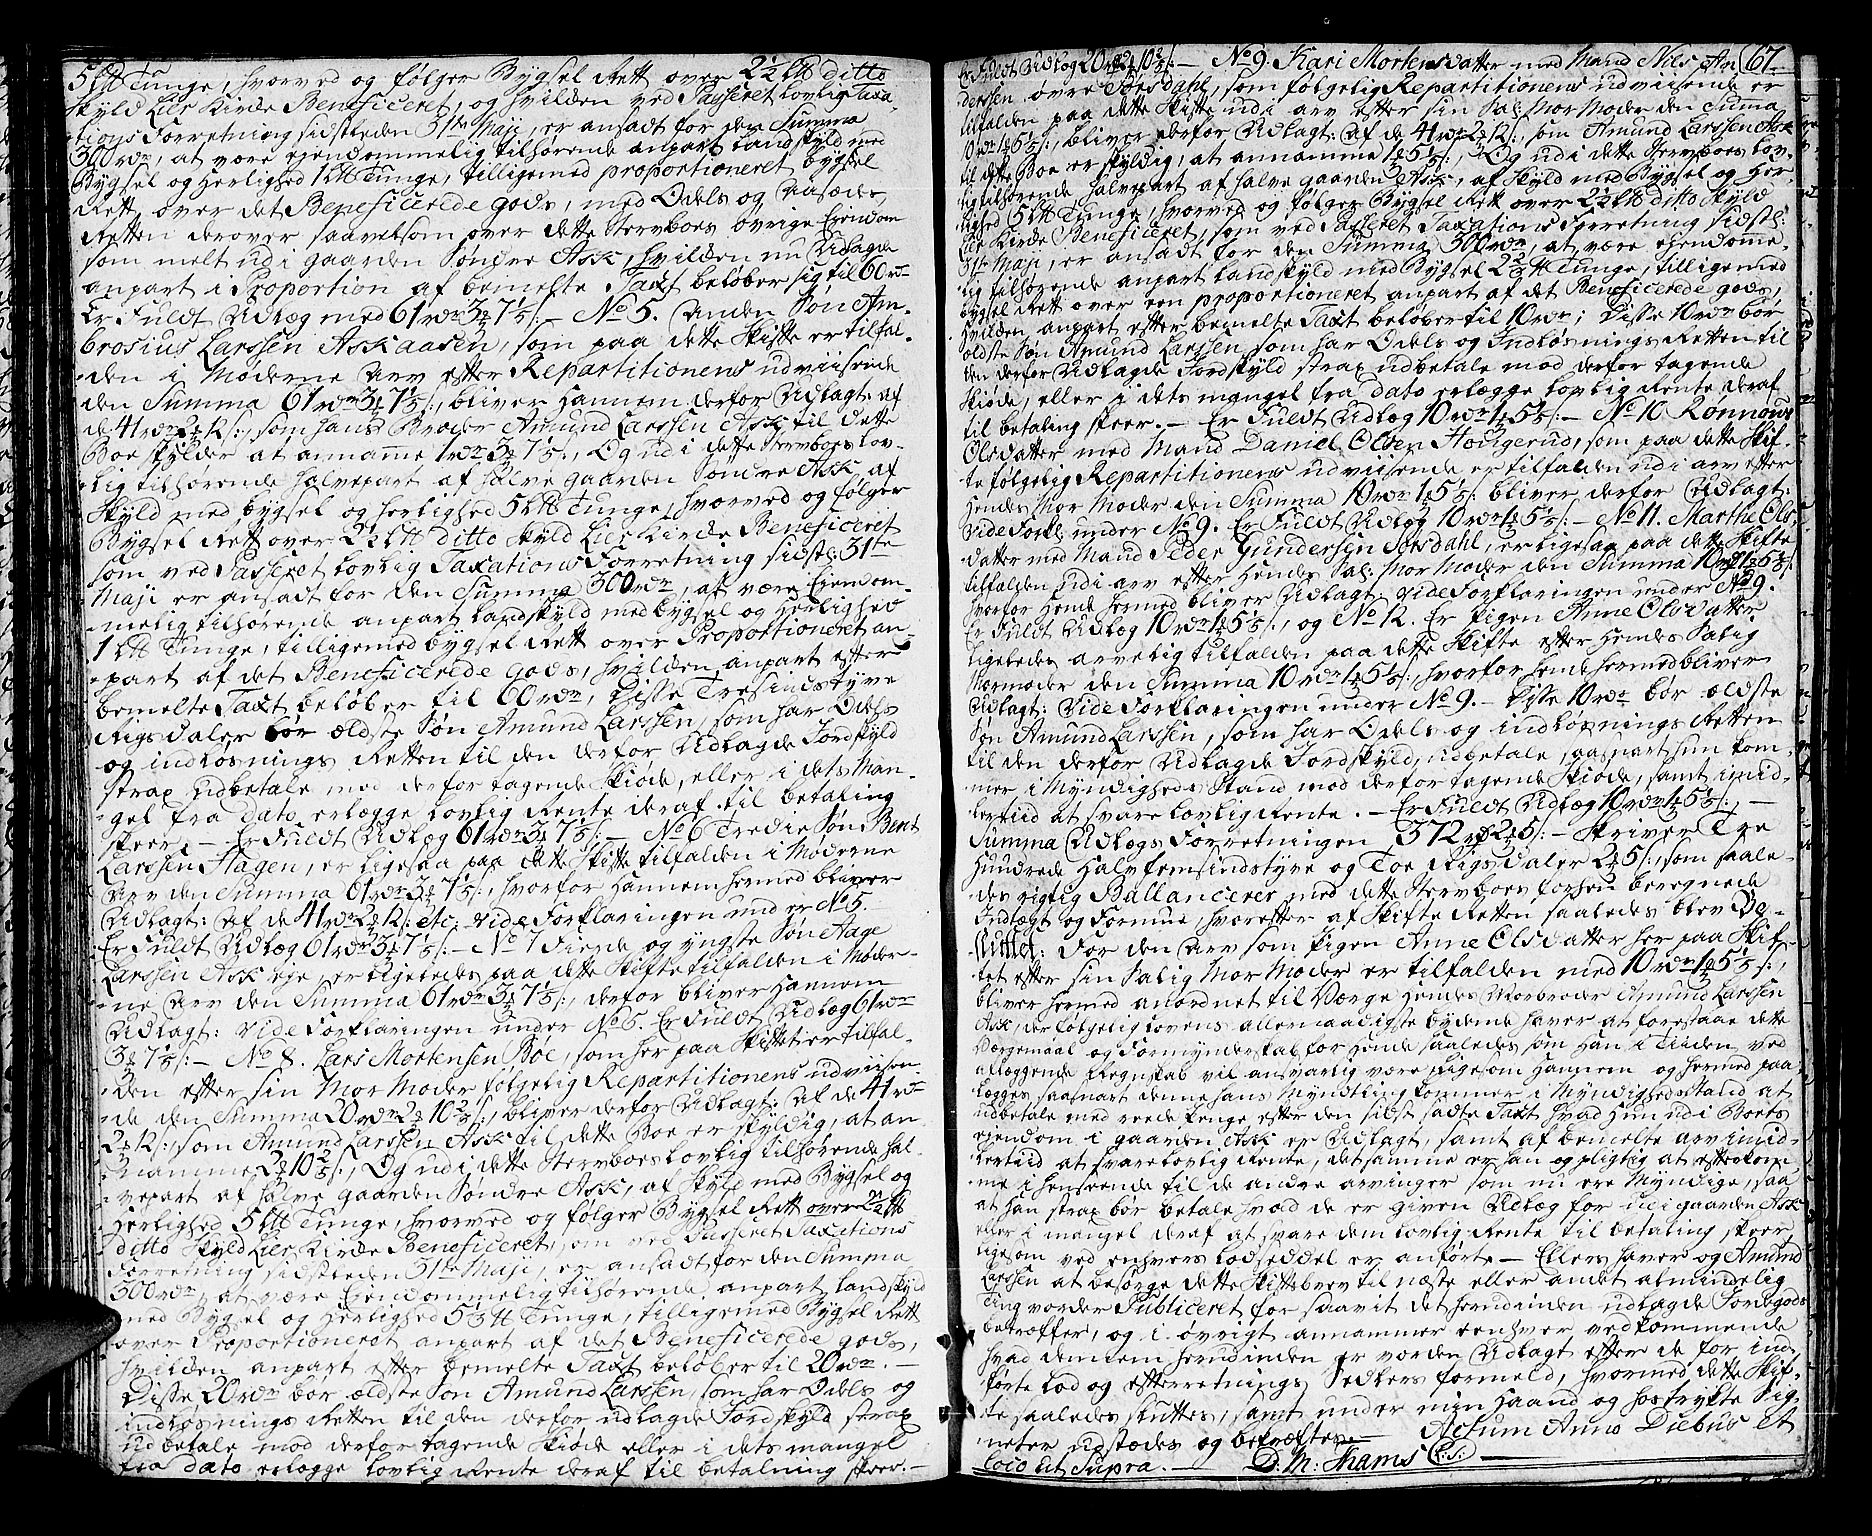 5 ℔ Tunge, hvorved og følger Bygsel Rett over 2½ ℔ ditto
Skyld Lier Kirke Beneficeret, og hvilden ved Passeret lovlig Taxa-
tions Forretning sidstleden 31te Maji, er ansadt for den Summa
300 rdr, at være ejendommelig tilhørende anpart Landskyld med
Bygsel og Herlighed 1 ℔ Tunge, tilligemed proportioneret bygsel
Rett over det Beneficerede gods, med Odels og Aasædes
Retten derover saavelsom over dette Sterboes øvrige Ejendom
som melt udi gaarden Søndre Ask, Hvilden nu Udlagde
anpart i Proportion af bemelte Taxt beløber sig til 60 rdr
Er Fuldt Udlæg med 61 rdr 3 ₰ 7⅕ s: — No 5. Anden Søn Am-
brosius Larssen Askaasen, som paa dette Skifte er tilfal-
den i Møderne Arv efter Repartitionens udviisende
den Summa 61 rdr 3 ₰ 7⅕ s:, bliver hannem derfor Udlagt: af
de 41 rdr 2 ₰ 12 s:, som hans Broder Amund Larssen Ask til dette
Boe skylder at annamme 1 rdr 3 ₰ 7⅕ s:, Og udi dette Sterboes lov-
lig tilhørende halvepart af halve gaarden Søndre Ask, af
Skyld med bygsel og herlighed 5 ℔ Tunge, hvorved og følger
Bygsel Rett over 2½ ℔ ditto Skyld Lier Kirke Beneficeret
som ved Passeret lovlig Taxations Forretning sidstl: 31te
Maji er ansadt for den Summa 300 rdr, at være Ejendom-
melig tilhørende anpart landskyld med bygsel og Herlighed
1 ℔ Tunge, tilligemed bygsel Rett over Proportioneret an-
part af det Beneficerede gods, hvilden anpart efter
bemelte Taxt beløber til 60 rdr, Disse Tresindstyve
Rigsdaler bør ældste Søn Amund Larssen, som har Odels
og indløsnings Retten til den derfor Udlagde Jordskyld
strax udbetale mod derfor tagende Skiøde, eller i dets Man-
gel fra dato erlægge lovlig Rente deraf til betaling
skeer. — Er Fuldt Udlæg 61 rdr 3 ₰ 7⅕ s: — No 6 Tredie Søn Bent
Larssen Hagen, er ligesaa paa dette Skifte tilfalden i Møderne
Arv den Summa 61 rdr 3 ₰ 7⅕ s:, hvorfor Hannem hermed bliver
Udlagt: Af de 41 rdr 2 ₰ 12 s: etc: vide Forklaringen under No 5.
Er Fuldt Udlæg 61 rdr 3 ₰ 7⅕ s: — No 7 Fierde og yngste Søn Aage
Larssen Ask eje, er ligeledes paa dette Skifte tilfalden i Møder-
ne Arv den Summa 61 rdr 3 ₰ 7⅕ s:, derfor bliver Hannem
Udlagt: vide Forklaringen under No 5. Er Fuldt Udlæg 61 rdr
3 ₰ 7⅕ s: — No 8. Lars Mortensen Bøe, som her paa Skiftet er tilfal-
den efter sin Mor Moder følgelig Repartitionens udviisen-
de den Summa 20 rdr 2 ₰ 10⅖ s:, bliver derfor Udlagt: af de 41 rdr
2 ₰ 12 s:, som Amund Larssen Ask til dette Boe er skyldig, at an-
namme 2 ₰ 10⅖ s:, Og udi dette Sterboes lovlig tilhørende hal-
vepart af halve gaarden Søndre Ask, af Skyld med Bygsel og
Herlighed 5 ℔ Tunge, hvorved og følger Bygsel Rett over 2½ ℔
ditto Skyld Lier Kirke Beneficeret, som ved Passeret Taxations
Forretning sidstleden 31te Maji, er ansadt for den Summa
300 rdr, at være Ejendommelig tilhørende anpart landskyld
med Bygsel og Herlighed 5⅓ ℔ Tunge, tilligemed Bygsel Rett
over Proportioneret anpart af det Beneficerede gods,
hvilden anpart efter bemelte Taxt beløber til 20 rdr. —
Disse 20 rdr bør ældste Søn Amund Larssen, som har Odels og
indløsnings Retten til den derfor udlagde Jordskyld strax
udbetale mod derfor tagende Skiøde eller i dets mangel
fra dato erlægge lovlig Rente deraf til betalning skeer. —
67.
Er Fuldt Udlæg 20 rdr 2 ₰ 10⅖ s: — No 9. Kari Mortensdatter med Mand Nils An-
derssen øvre Sørsdahl, som følgelig Repartitionens udviisende er
tilfalden paa dette Skifte udi arv efter sin Sal: Mor Moder den Suma
10 rdr 1 ₰ 5⅕ s:, bliver derfor Udlagt: Af de 41 rdr 2 ₰ 12 s:, som Amund Larssen Ask
til dette Boe er skyldig, at annamme 1 ₰ 5⅕ s:, Og udi dette Sterboes lov-
lig tilhørende halvepart af halve gaarden Ask, af Skyld med Bygsel og Her-
lighed 5 ℔ Tunge, hvorved og følger Bygsel Rett over 2½ ℔ ditto Skyld
Lier Kirke Beneficeret, som ved Passeret Taxations Forretning sidstl:
31te Maji, er ansadt for den Summa 300 rdr, at være ejendomme-
lig tilhørende anpart landskyld med Bygsel 2⅔ ℔ Tunge, tilligemed
bygsel Rett over een proportioneret anpart af det Beneficerede gods,
Hvilden anpart efter bemelte Taxt beløber til 10 rdr; Disse 10 rdr bør
ældste Søn Amund Larssen som har Odels og Indløsnings Retten til
den derfor Udlagde Jordskyld strax udbetale mod derfor tagende
Skiøde, eller i dets mangel fra dato erlægge lovlig Rente deraf
til betaling skeer. — Er Fuldt Udlæg 10 rdr 1 ₰ 5⅕ s: — No 10 Rønnoug
Olsdatter med Mand Daniel Olsen Houggerud, som paa dette Skif-
te følgelig Repartitionens udviisende er tilfalden udi arv efter
Hendes Mor Moder den Summa 10 rdr 1 ₰ 5⅕ s: bliver derfor Udlagt:
Vide Forkl: under No 9. Er Fuldt Udlæg 10 rdr 1 ₰ 5⅕ s: — No 11. Marthe Ols-
datter med Mand Peder Gundersen Sørsdahl, er ligesaa paa dette Skifte
tilfalden udi arv efter Hendes Sal: Mor Moder den Summa 10 rdr 1 ₰ 5⅕ s:
hvorfor Hende hermed bliver Udlagt vide Forklaringen under No 9.
Er Fuldt Udlæg 10 rdr 1 ₰ 5⅕ s:, og No 12. Er Pigen Anne Olsdatter
ligeledes arvelig tilfalden paa dette Skifte efter Hendes Salig
Mormoder den Summa 10 rdr 1 ₰ 5⅕ s:, hvorfor hende hermed bliver
Udlagt: Vide Forklaringen under No 9. — Disse 10 rdr bør ældste
Søn Amund Larssen, som har Odels og indløsnings Retten
til den derfor Udlagde Jordskyld, udbetale, saasnart hun kom-
mer i Myndigheds Stand mod derfor tagende Skiøde, samt imid-
lertiid at svare lovlig Rente. — Er Fuldt Udlæg 10 rdr 1 ₰ 5⅕ s:, —
Summa Udlægs Forretningen 372 rdr 2 ₰ 5 s: — Skriver Tre
Hundrede Halvfemsindstyve og Toe Rigsdaler 2 ₰ 5 s:, som saale-
des rigtig Ballancerer med dette Sterboes forhen beregnede
Indtægt og Formue, hvorefter af Skifte Retten saaledes blev Be-
sluttet: For den Arv som Pigen Anne Olsdatter her paa Skif-
tet efter sin Salig Mor Moder er tilfalden med 10 rdr 1 ₰ 5⅕ s:,
bliver hermed anordnet til Værge Hendes Morbroder Amund Larssen
Ask, der følgelig Lovens allernaadigste bydende haver at forestaae dette
Værgemaal og Formynderskab for Hende saaledes som Han i Tiiden ved
aflæggende Regnskab vil ansvarlig være ligesom Hannem og hermed paa-
lægges, saasnart denne hans Myndtling kommer i Myndigheds Stand at
udbetale med reede Penge efter den sidst sadte Taxt hvad Hun udi Boets
ejendom i gaarden Ask er Udlagt, samt af bemelte arv imid-
lertiid at svare lovlig Rente, det samme er han og pligtig at efterkom-
me i henseende til de andre arvinger som nu ere Myndige, saa
at han strax bør betale hvad de er given Udlæg for udi gaarden Ask
eller i mangel deraf at svare dem lovlig Rente til betaling skeer
ligesom ved enhvers lodseddel er anførte — Ellers haver og Amund
Larssen at besørge dette Skiftebrev til næste eller andet almindelig
Ting vorder Publiceret for saavit det herudinden udlagde Jordegods
betræffer, og i øvrigt annammer eenhver vedkommende
hvad dennem herudinden er vorden Udlagt efter de for ind-
førte Lod og efterretnings Sedlers formeld, hvormed dette Skif-
te saaledes sluttes, samt under min Haand og hostrykte Sig-
nete udstædes og bekræftes. — Actum Anno Diebus et
loco ut Supra. — D. M. Thams (L: S:)